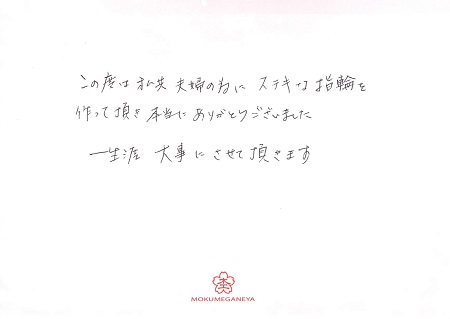 この度は私共夫婦の為にステキな指輪を
作って頂き本当にありがとうございました
一生涯 大事にさせて頂きます
杢
MOKUMEGANEYA